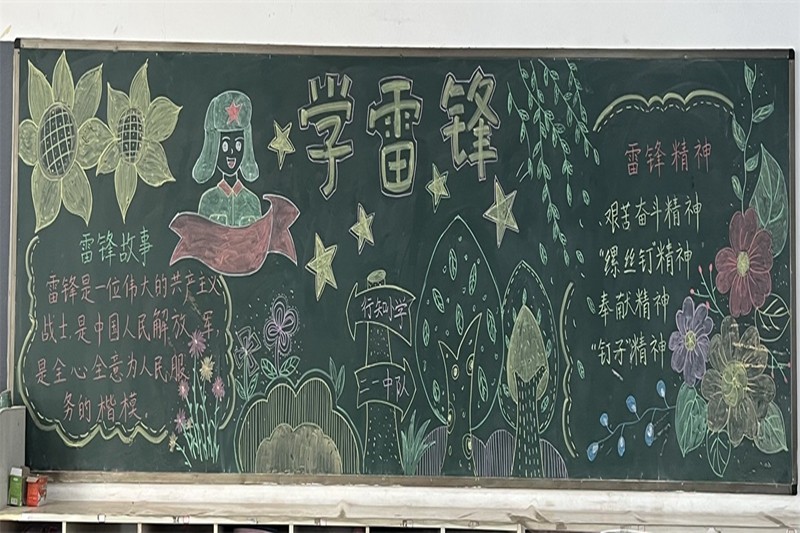 学雷锋
雷锋故事
雷锋是一位伟大的共产主义
战士,是中国人民解放军
是全心全意为人民服
务的楷模。
行知学
二一中队
雷锋精神
艰苦奋斗精神
“螺丝钉”精神
奉献精神
“钉子”精神